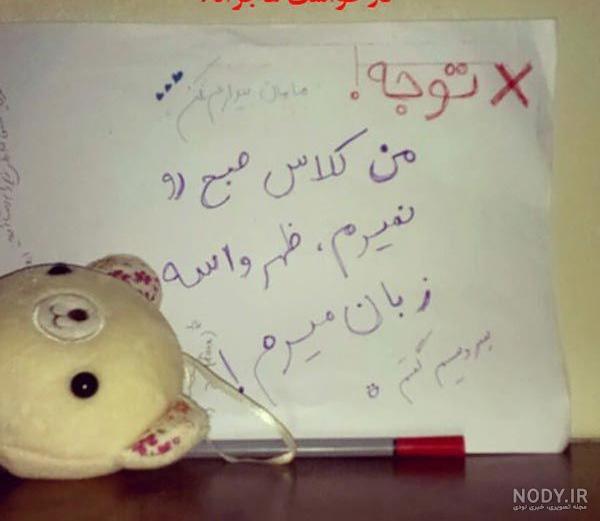 توجه!
مامان بیدارم نکن
من کلاس صبح رو
نمیرم، ظهر واسه
زبان میرم!
گفتم
NODY.IR
مجله تصویری، خبری نودی